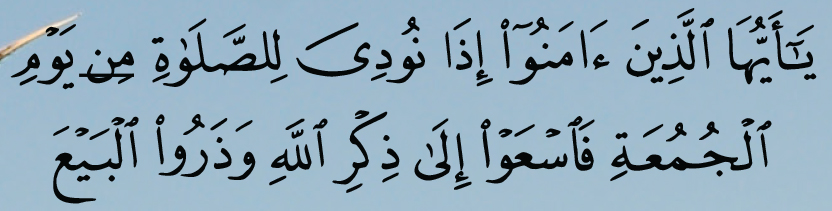 يَـٰٓأَيُّهَا ٱلَّذِينَ ءَامَنُوٓا۟ إِذَا نُودِىَ لِلصَّلَوٰةِ مِن يَوْمِ
ٱلْجُمُعَةِ فَٱسْعَوْا۟ إِلَىٰ ذِكْرِ ٱللَّهِ وَذَرُوا۟ ٱلْبَيْعَ